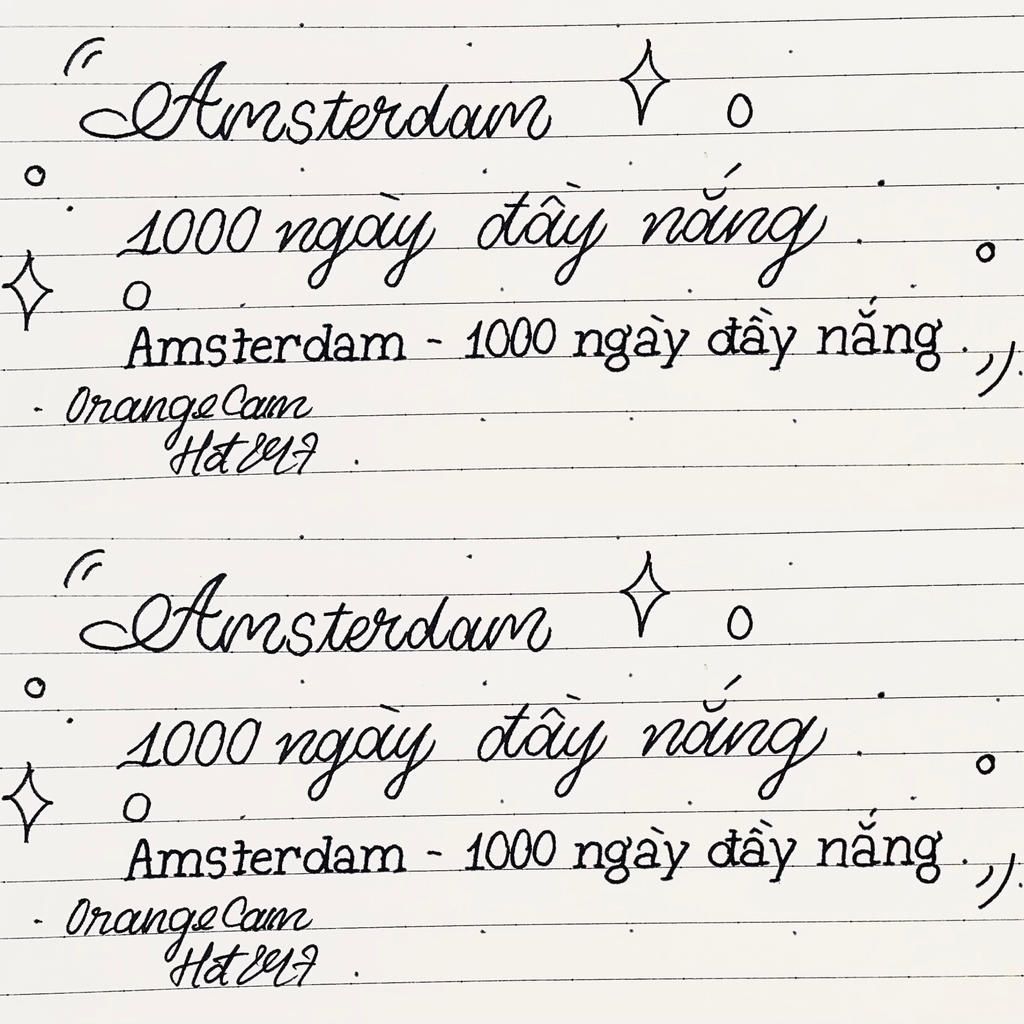 Amsterdam
1000 ngày đầy nắng.
Amsterdam - 1000 ngày đầy nắng.
- OrangeCam
Amsterdam
1000 ngày đầy nắng.
Amsterdam - 1000 ngày đầy nắng.
- OrangeCam